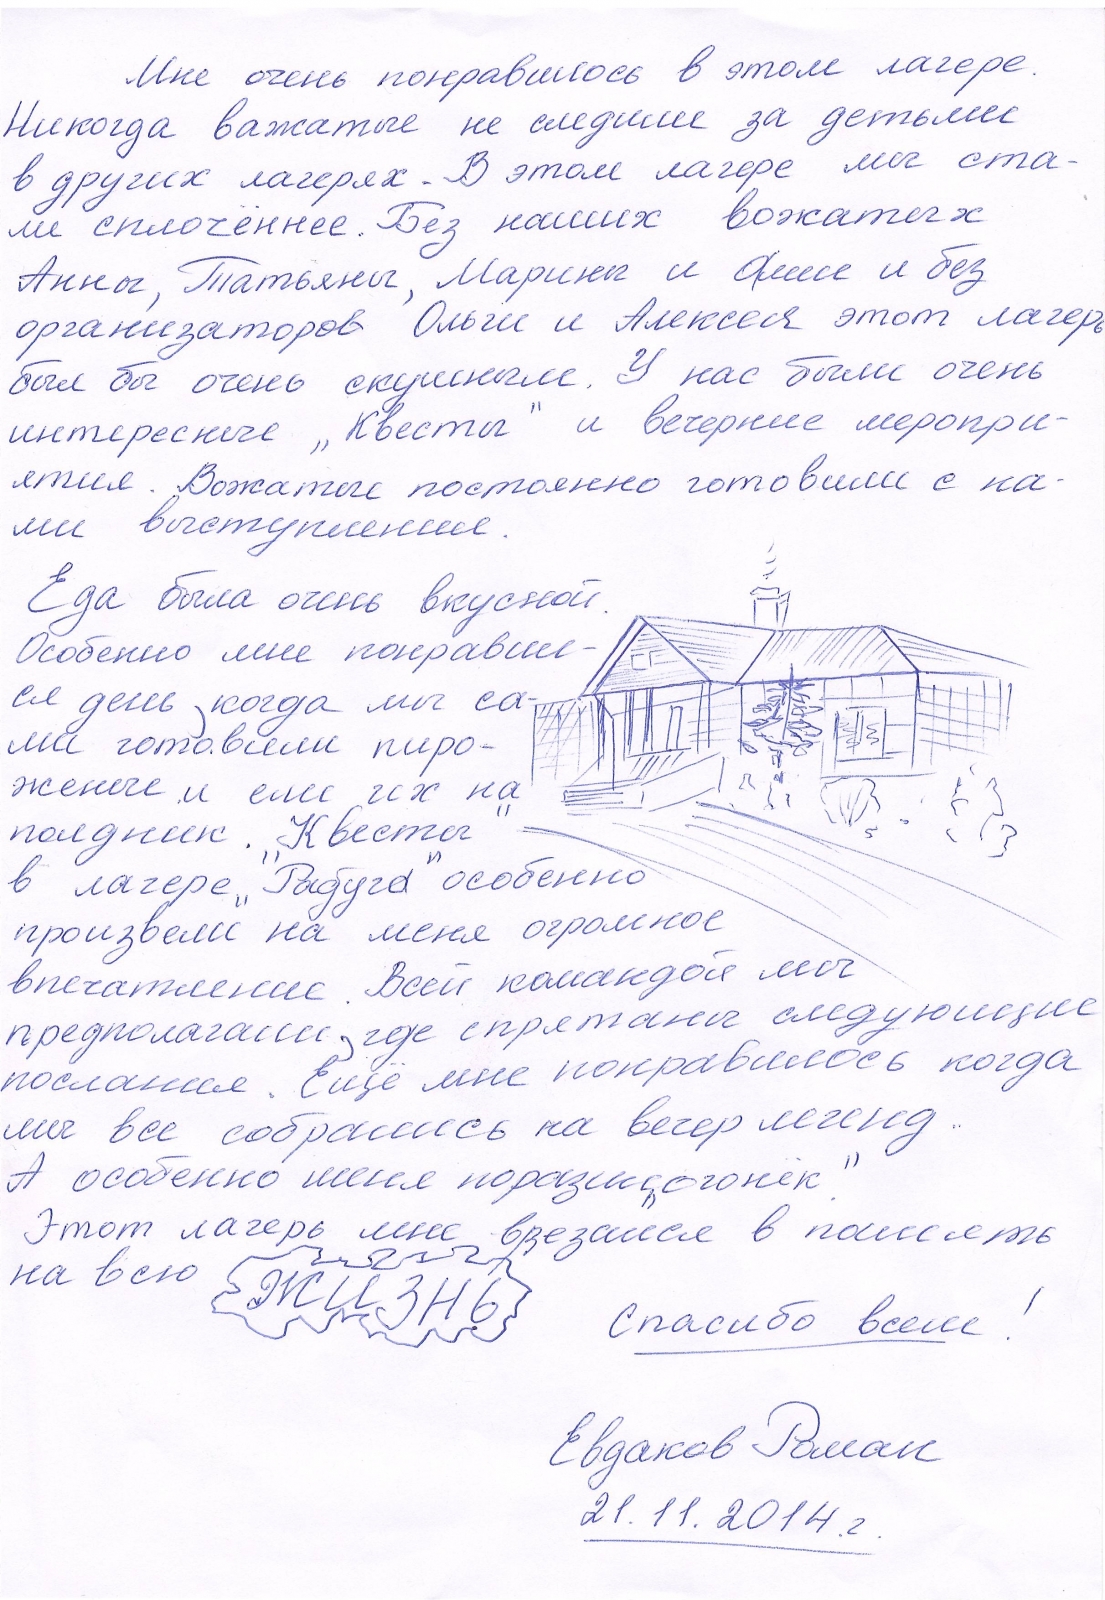 Мне очень понравилось в этом лагере.
Никогда важатые не следили за детьми
в других лагерях. В этом лагере мы ста-
ли сплочённее. Без наших вожатых
Анны, Татьяны, Марины и и без
организаторов Ольги и Алексея этот лагерь
был бы очень скушным. У нас были очень
интересные „Квесты" и вечерние меропри-
ятия. Вожатые постоянно готовили с на-
ми выступление.
Еда была очень вкусной.
Особенно мне понравил-
ся день, когда мы са-
ми готовили пиро-
женые и ели их на
полдник. „Квесты"
в лагере „Радуга" особенно
произвели на меня огромное
впечатление. Всей командой мы
предполагали, где спрятаны следующие
послания. Ещё мне понравилось когда
мы все собрались на вечер легенд..
А особенно меня поразил „огонёк".
Этот лагерь мне врезался в память
на всю ЖИЗНЬ
Спасибо всем!
Евдаков Роман
21.11.2014.г.